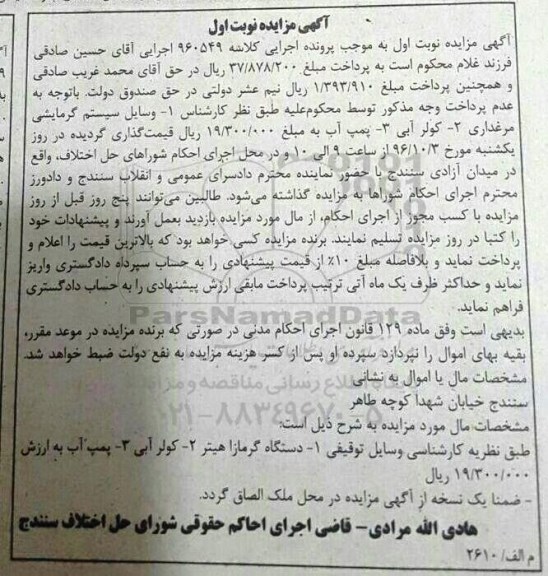 آگهی مزایده نوبت اول
آگهی مزایده نوبت اول به موجب پرونده اجرایی کلاسه ۹۶۰۵۴۹ اجرایی آقای حسین صادقی
فرزند غلام محکوم است به پرداخت مبلغ ۳۷/۸۷۸/۲۰۰ ریال در حق آقای محمد غریب صادقی
و همچنین پرداخت مبلغ ۱/۳۹۳/۹۱۰ ریال نیم عشر دولتی در حق صندوق دولت. باتوجه به
عدم پرداخت وجه مذکور توسط محکوم‌علیه طبق نظر کارشناس ۱- وسایل سیستم گرمایشی
مرغداری ۲- کولر آبی ۳- پمپ آب به مبلغ ۱۹/۳۰۰/۰۰۰ ریال قیمت‌گذاری گردیده در روز
یکشنبه مورخ ۹۶/۱۰/۳ از ساعت ۹ الی ۱۰ و در محل اجرای احکام شوراهای حل اختلاف، واقع
در میدان آزادی سنندج با حضور نماینده محترم دادسرای عمومی و انقلاب سنندج و دادورز
محترم اجرای احکام شوراها به مزایده گذاشته می‌شود. طالبین می‌توانند پنج روز قبل از روز
مزایده با کسب مجوز از اجرای احکام، از مال مورد مزایده بازدید بعمل آورند و پیشنهادات خود
را کتبا در روز مزایده تسلیم نمایند. برنده مزایده کسی خواهد بود که بالاترین قیمت را اعلام و
پرداخت نماید و بلافاصله مبلغ ۱۰٪ از قیمت پیشنهادی را به حساب سپرده دادگستری واریز
نماید و حداکثر ظرف یک ماه آتی ترتیب پرداخت مابقی ارزش پیشنهادی را به حساب دادگستری
فراهم نماید.
بدیهی است وفق ماده ۱۲۹ قانون اجرای احکام مدنی در صورتی که برنده مزایده در موعد مقرر،
بقیه بهای اموال را نپردازد سپرده او پس از کسر هزینه مزایده به نفع دولت ضبط خواهد شد.
مشخصات مال یا اموال به نشانی
سنندج خیابان شهدا کوچه طاهر
مشخصات مال مورد مزایده به شرح ذیل است:
طبق نظریه کارشناسی وسایل توقیفی ۱- دستگاه گرمازا هیتر ۲- کولر آبی ۳- پمپ آب به ارزش
۱۹/۳۰۰/۰۰۰ ریال
- ضمنا یک نسخه از آگهی مزایده در محل ملک الصاق گردد.
هادی الله مرادی- قاضی اجرای احاکم حقوقی شورای حل اختلاف سنندج
م الف/ ۲۶۱۰
ParsNamadData
پایگاه اطلاع رسانی مناقصه و مزایده
۰۲۱-۸۸۳۴۹۶۷۰-۵